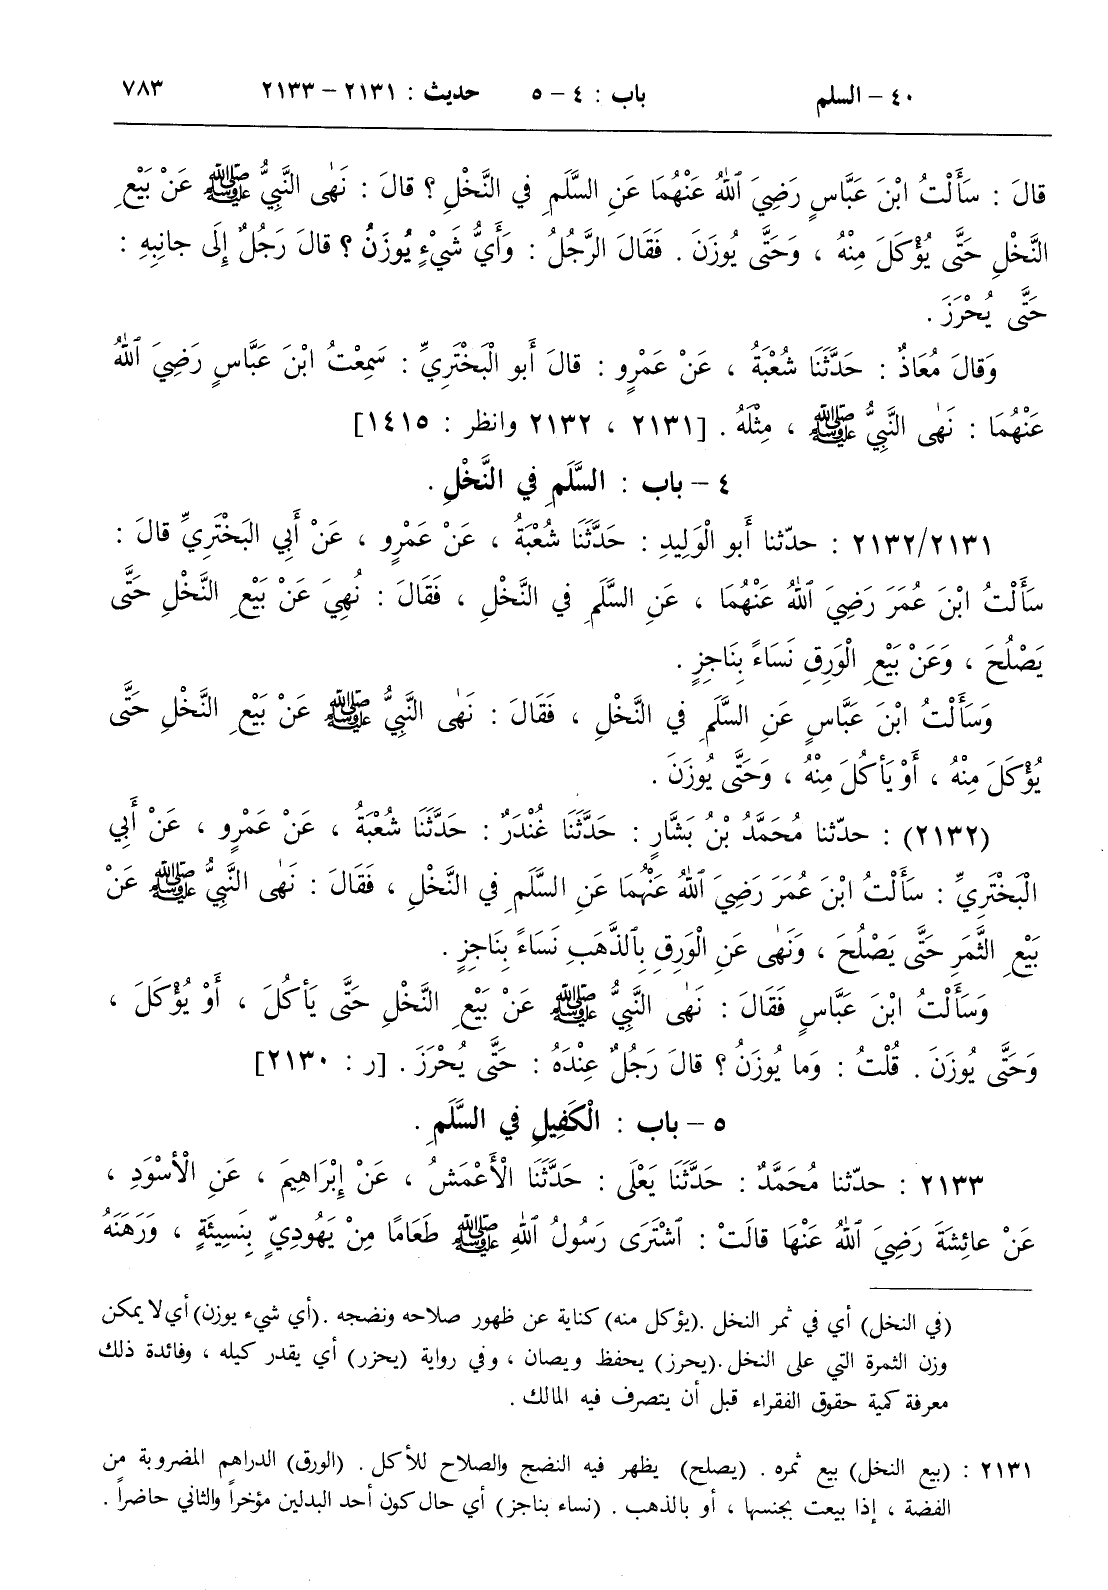 ٤٠ – السلم باب : ٤ – ٥ حديث : ٢١٣١ – ٢١٣٣ ٧٨٣
قالَ : سَأَلْتُ ابْنَ عَبَّاسٍ رَضِيَ ٱللهُ عَنْهُمَا عَنِ السَّلَمِ في النَّخْلِ ؟ قالَ : نَهٰى النَّبِيُّ ﷺ عَنْ بَيْعِ
النَّخْلِ حَتَّى يُؤْكَلَ مِنْهُ ، وَحَتَّى يُوزَنَ . فَقَالَ الرَّجُلُ : وَأَيُّ شَيْءٍ يُوزَنُ ؟ قالَ رَجُلٌ إِلَى جانِبِهِ :
حَتَّى يُحْرَزَ .
وَقالَ مُعَاذٌ : حَدَّثَنَا شُعْبَةُ ، عَنْ عَمْرٍو : قالَ أَبو الْبَخْتَرِيِّ : سَمِعْتُ ابْنَ عَبَّاسٍ رَضِيَ ٱللهُ
عَنْهُمَا : نَهٰى النَّبِيُّ ﷺ ، مِثْلَهُ . [٢١٣١ ، ٢١٣٢ وانظر : ١٤١٥]
٤ – باب : السَّلَمِ في النَّخْلِ .
٢١٣٢/٢١٣١ : حدّثنا أَبو الْوَلِيدِ : حَدَّثَنَا شُعْبَةُ ، عَنْ عَمْرٍو ، عَنْ أَبِي البَخْتَرِيِّ قالَ :
سَأَلْتُ ابْنَ عُمَرَ رَضِيَ ٱللهُ عَنْهُمَا ، عَنِ السَّلَمِ في النَّخْلِ ، فَقَالَ : نُهِيَ عَنْ بَيْعِ النَّخْلِ حَتَّى
يَصْلُحَ ، وَعَنْ بَيْعِ الْوَرِقِ نَسَاءً بِنَاجِزٍ .
وَسَأَلْتُ ابْنَ عَبَّاسٍ عَنِ السَّلَمِ في النَّخْلِ ، فَقَالَ : نَهٰى النَّبِيُّ ﷺ عَنْ بَيْعِ النَّخْلِ حَتَّى
يُؤْكَلَ مِنْهُ ، أَوْ يَأْكُلَ مِنْهُ ، وَحَتَّى يُوزَنَ .
(٢١٣٢) : حدّثنا مُحَمَّدُ بْنُ بَشَّارٍ : حَدَّثَنَا غُنْدَرٌ : حَدَّثَنَا شُعْبَةُ ، عَنْ عَمْرٍو ، عَنْ أَبِي
الْبَخْتَرِيِّ : سَأَلْتُ ابْنَ عُمَرَ رَضِيَ ٱللهُ عَنْهُمَا عَنِ السَّلَمِ في النَّخْلِ ، فَقَالَ : نَهٰى النَّبِيُّ ﷺ عَنْ
بَيْعِ الثَّمَرِ حَتَّى يَصْلُحَ ، وَنَهٰى عَنِ الْوَرِقِ بِٱلذَّهَبِ نَسَاءً بِنَاجِزٍ .
وَسَأَلْتُ ابْنَ عَبَّاسٍ فَقَالَ : نَهٰى النَّبِيُّ ﷺ عَنْ بَيْعِ النَّخْلِ حَتَّى يَأْكُلَ ، أَوْ يُؤْكَلَ ،
وَحَتَّى يُوزَنَ . قُلْتُ : وَما يُوزَنُ ؟ قالَ رَجُلٌ عِنْدَهُ : حَتَّى يُحْرَزَ . [ر : ٢١٣٠]
٥ – باب : الْكَفِيلِ في السَّلَمِ .
٢١٣٣ : حدّثنا مُحَمَّدٌ : حَدَّثَنَا يَعْلَى : حَدَّثَنَا الْأَعْمَشُ ، عَنْ إِبْرَاهِيمَ ، عَنِ الْأَسْوَدِ ،
عَنْ عائِشَةَ رَضِيَ ٱللهُ عَنْهَا قالَتْ : ٱشْتَرَى رَسُولُ ٱللهِ ﷺ طَعَامًا مِنْ يَهُودِيٍّ بِنَسِيئَةٍ ، وَرَهَنَهُ
(في النخل) أي في ثمر النخل .(يؤكل منه) كناية عن ظهور صلاحه ونضجه .(أي شيء يوزن) أي لا يمكن
وزن الثمرة التي على النخل .(يحرز) يحفظ ويصان ، وفي رواية (يحزر) أي يقدر كيله ، وفائدة ذلك
معرفة كمية حقوق الفقراء قبل أن يتصرف فيه المالك .
٢١٣١ : (بيع النخل) بيع ثمره . (يصلح) يظهر فيه النضج والصلاح للأكل . (الورق) الدراهم المضروبة من
الفضة ، إذا بيعت بجنسها ، أو بالذهب . (نساء بناجز) أي حال كون أحد البدلين مؤخراً والثاني حاضراً .